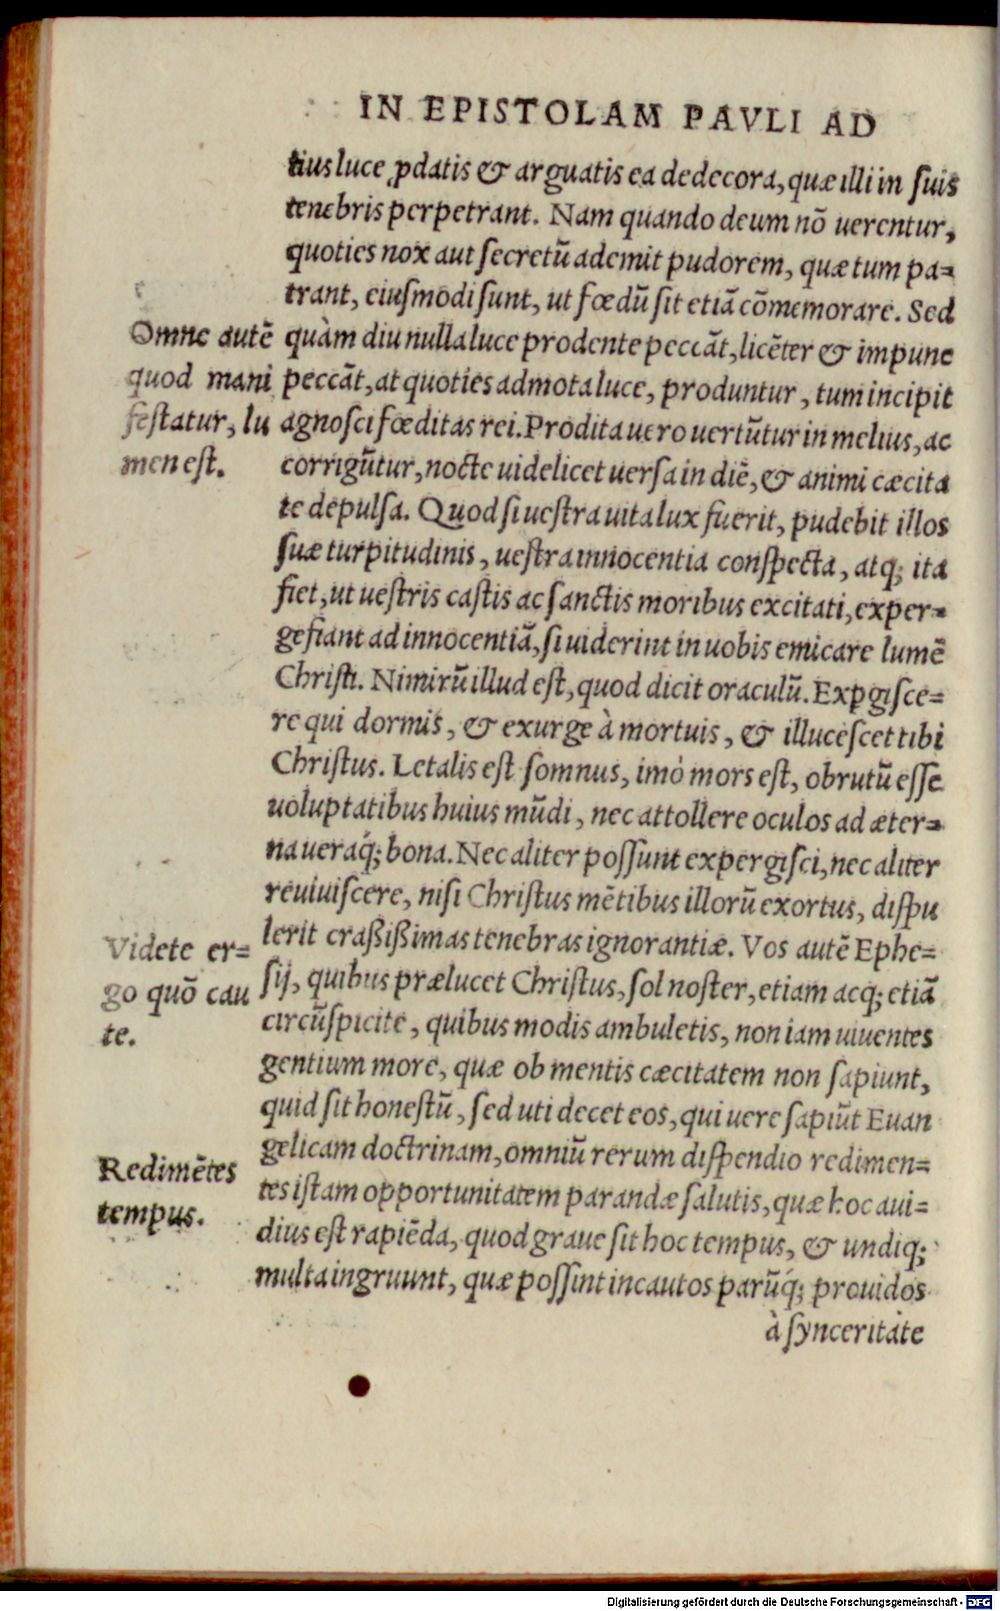 IN EPISTOLAM PAVLI AD
tius luce ꝓdatis & arguatis ea dedecora, quæ illi in suis
tenebris perpetrant. Nam quando deum nō uerentur,
quoties nox aut secretū ademit pudorem, quæ tum pa=
trant, eiusmodi sunt, ut fœdū sit etiā cōmemorare. Sed
Omne autē
quod mani
festatur, lu
men est.
quàm diu nulla luce prodente peccāt, licēter & impune
peccāt, at quoties admota luce, produntur, tum incipit
agnosci fœditas rei. Prodita uero uertūtur in melius, ac
corrigūtur, nocte uidelicet uersa in diē, & animi cæcita
te depulsa. Quod si uestra uita lux fuerit, pudebit illos
suæ turpitudinis, uestra innocentia conspecta, atq; ita
fiet, ut uestris castis ac sanctis moribus excitati, exper=
gefiant ad innocentiā, si uiderint in uobis emicare lumē
Christi. Nimirū illud est, quod dicit oraculū. Exꝑgisce=
re qui dormis, & exurge à mortuis, & illucescet tibi
Christus. Letalis est somnus, imò mors est, obrutū esse
uoluptatibus huius mūdi, nec attollere oculos ad æter=
na ueraq́; bona. Nec aliter possunt expergisci, nec aliter
reuiuiscere, nisi Christus mētibus illorū exortus, dispu
lerit craßißimas tenebras ignorantiæ. Vos autē Ephe=
Videte er=
go quō cau
te.
sij, quibus prælucet Christus, sol noster, etiam acq; etiā
circūspicite, quibus modis ambuletis, non iam uiuentes
gentium more, quæ ob mentis cæcitatem non sapiunt,
quid sit honestū, sed uti decet eos, qui uere sapiūt Euan
gelicam doctrinam, omniū rerum dispendio redimen=
Redimētes
tempus.
tes istam opportunitatem parandæ salutis, quæ hoc aui=
dius est rapiēda, quod graue sit hoc tempus, & undiq;
multa ingruunt, quæ possint incautos parūq́; prouidos
à synceritate
Digitalisierung gefördert durch die Deutsche Forschungsgemeinschaft - DFG